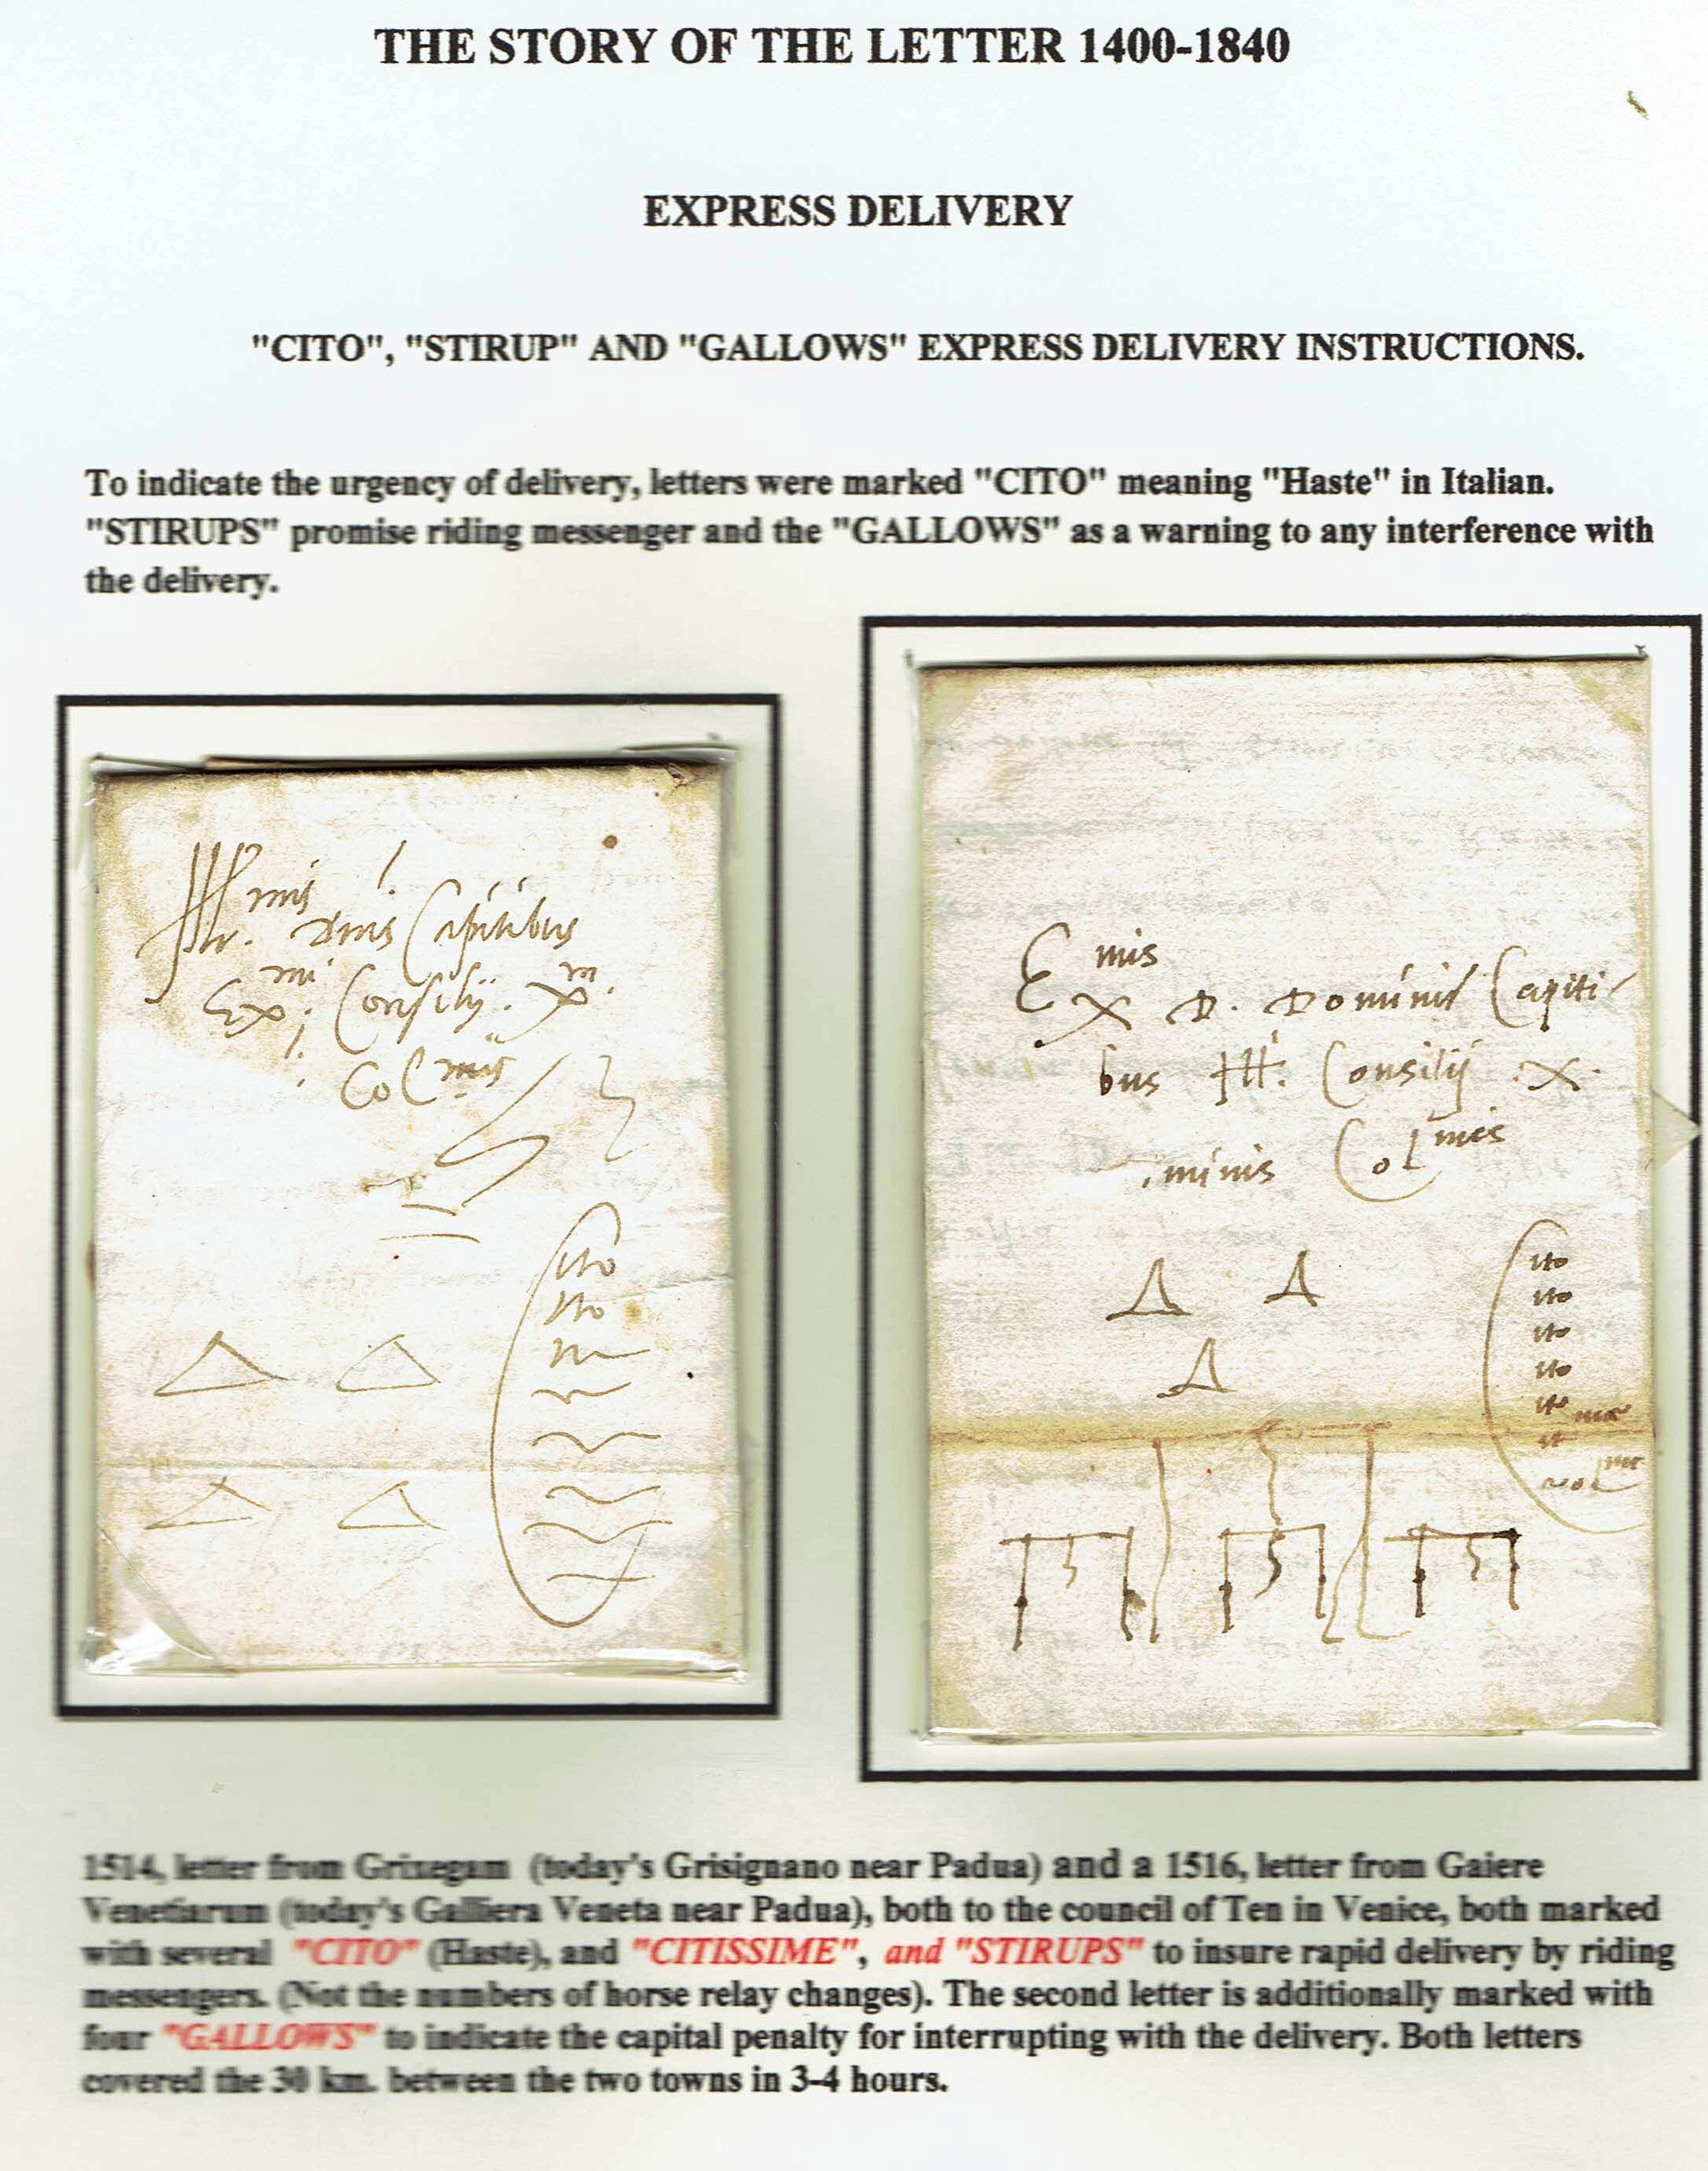 THE STORY OF THE LETTER 1400-1840
EXPRESS DELIVERY
"CITO", "STIRUP" AND "GALLOWS" EXPRESS DELIVERY INSTRUCTIONS.
To indicate the urgency of delivery, letters were marked "CITO" meaning "Haste" in Italian.
"STIRUPS" promise riding messenger and the "GALLOWS" as a warning to any interference with
the delivery.
mis
Dnis Capitibus
mi m
Ex Consilij. X.
Col mis
Cito
ito
mis
Ex D. Dominis Capiti-
bus Ill. Consilij .X.
minis Col mis
Cito
ito
ito
ito
ito
1514, letter from Grixegam (today's Grisignano near Padua) and a 1516, letter from Gaiere
Venetiarum (today's Galliera Veneta near Padua), both to the council of Ten in Venice, both marked
with several "CITO" (Haste), and "CITISSIME", and "STIRUPS" to insure rapid delivery by riding
messengers. (Not the numbers of horse relay changes). The second letter is additionally marked with
four "GALLOWS" to indicate the capital penalty for interrupting with the delivery. Both letters
covered the 30 km. between the two towns in 3-4 hours.